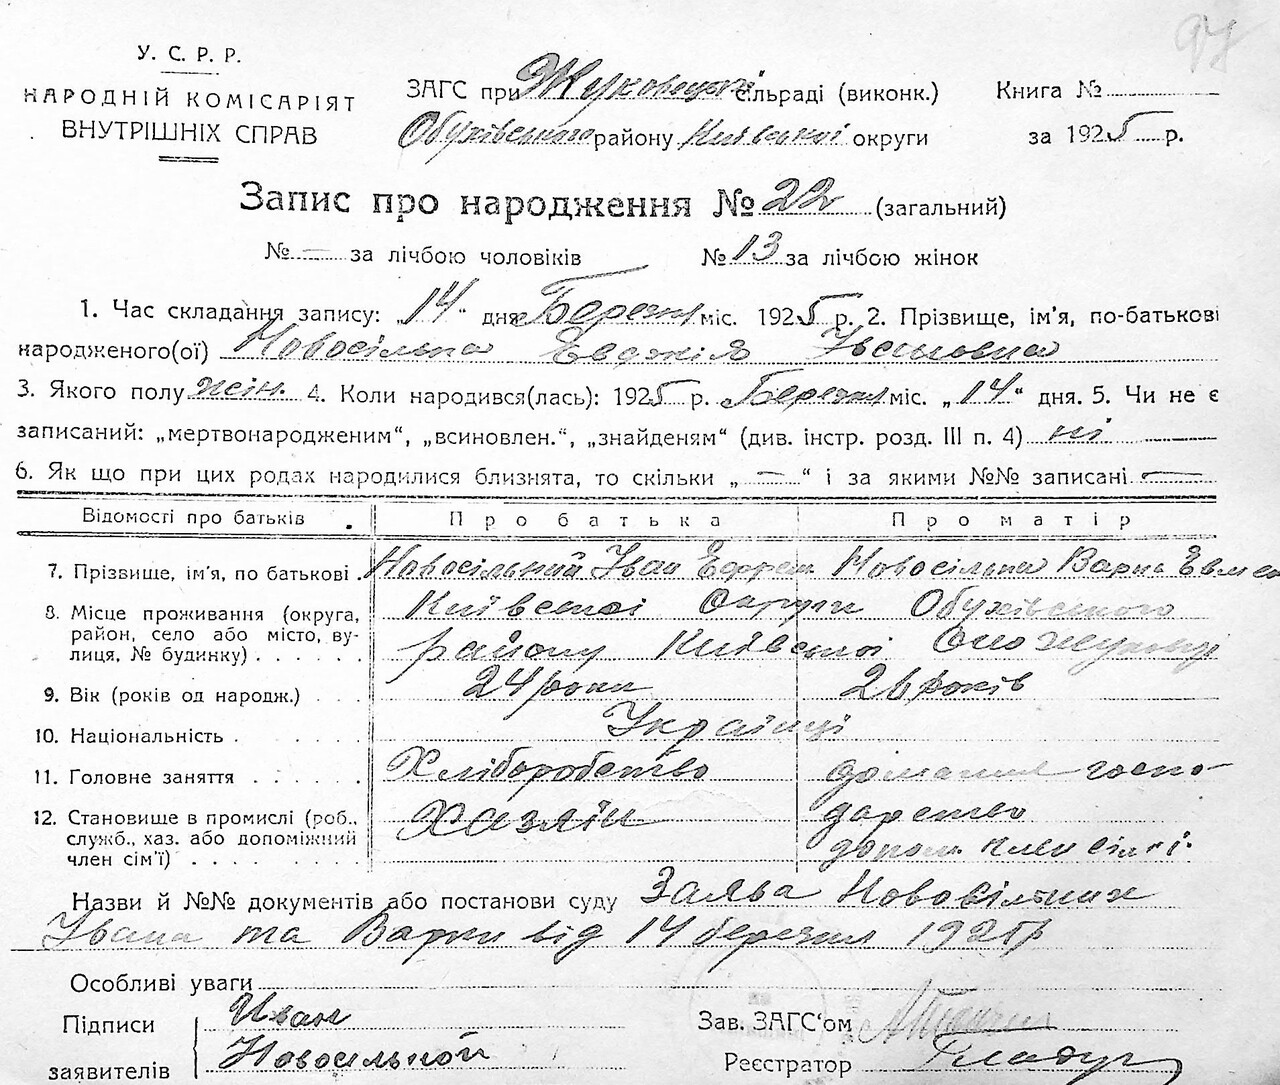 97
У. С. Р. Р.
НАРОДНІЙ КОМІСАРІЯТ
ВНУТРІШНІХ СПРАВ
ЗАГС при Жуковецькій сільраді (виконк.) Книга №
Обухівського району Київської округи за 1925 р.
Запис про народження № 22 (загальний)
№ — за лічбою чоловіків № 13 за лічбою жінок
1. Час складання запису: „14“ дня Березня міс. 1925 р. 2. Прізвище, ім'я, по-батькові
народженого(ої) Новосільна Євдокія Івановна
3. Якого полу жін. 4. Коли народився(лась): 1925 р. Березня міс. „14“ дня. 5. Чи не є
записаний: „мертвонародженим“, „всиновлен.“, „знайденям“ (див. інстр. розд. III п. 4) ні
6. Як що при цих родах народилися близнята, то скільки „—“ і за якими №№ записані —
Відомості про батьків Про батька Про матір
7. Прізвище, ім'я, по батькові Новосільний Іван Єфрем Новосільна Варка Евмен
8. Місце проживання (округа, район, село або місто, вулиця, № будинку) Київської Округи Обухівського
району Київської
9. Вік (років од народж.) 24 роки 26 років
10. Національність Українці
11. Головне заняття Хліборобство домашнє госпо-
12. Становище в промислі (роб., Хазяїн дарство
служб., хаз. або допоміжний
член сім'ї) допом. член сім'ї.
Назви й №№ документів або постанови суду Заява Новосільних
Івана та Варки від 14 березня 1925 р
Особливі уваги
Підписи Иван Зав. ЗАГС'ом
заявителів Новосельной Реєстратор